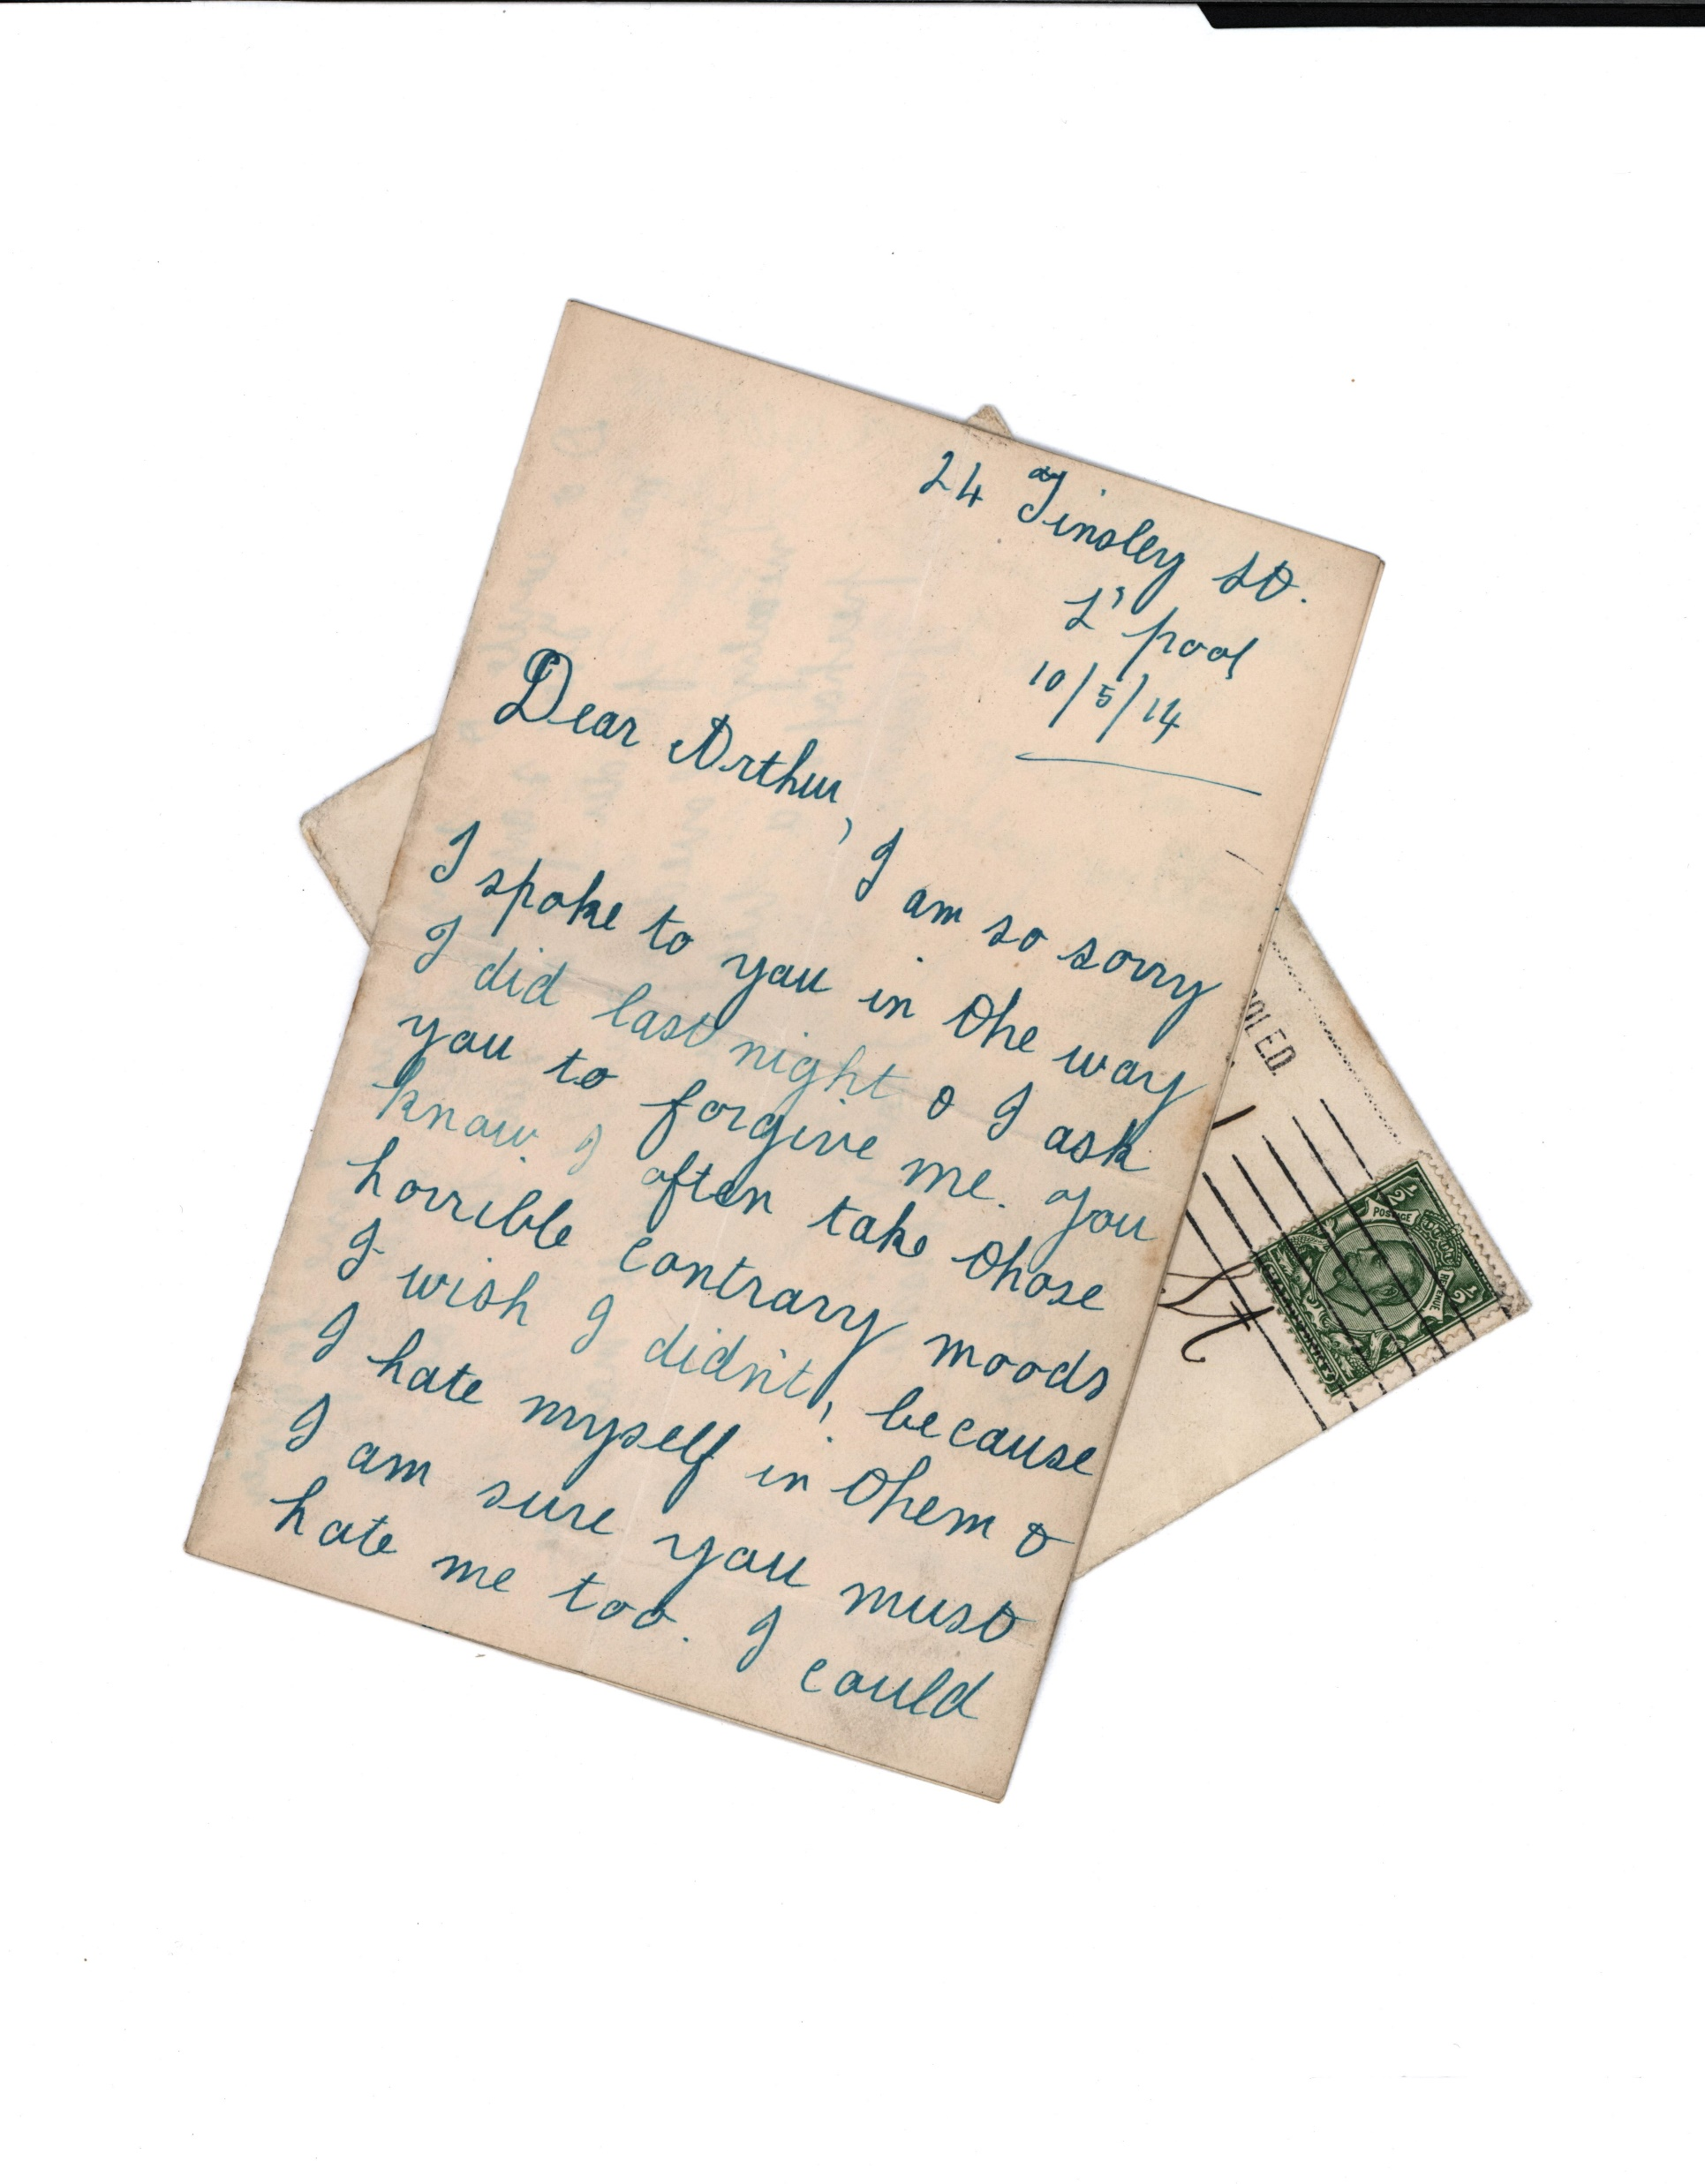 24 Tinsley St.
L'pool
10/5/14
Dear Arthur,
I am so sorry
I spoke to you in the way
I did last night & I ask
you to forgive me. You
know I often take those
horrible contrary moods
I wish I didn't, because
I hate myself in them &
I am sure you must
hate me too. I could
POSTAGE
REVENUE
1/2
1/2